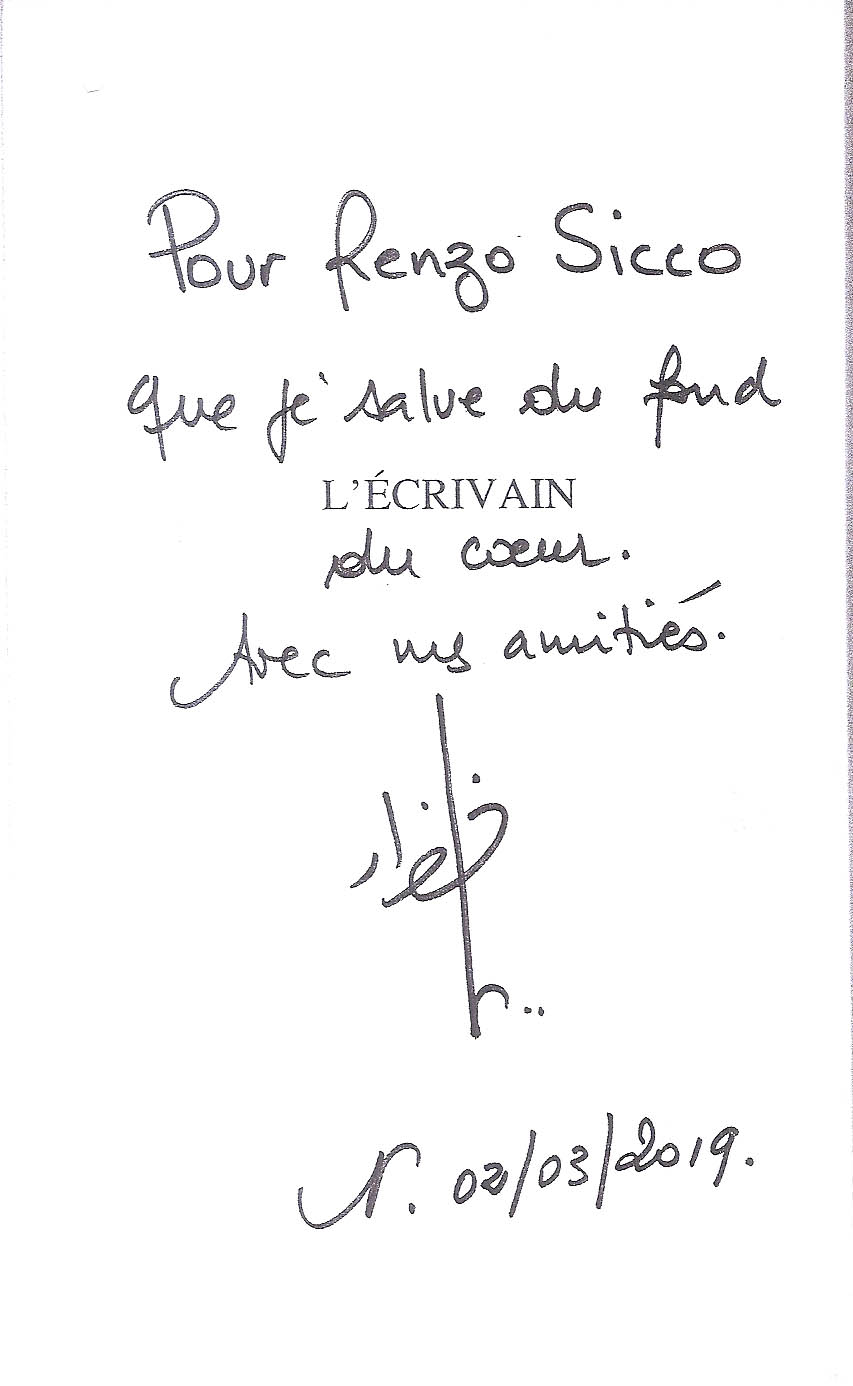 Pour Renzo Sicco
que je salue du fond
L'ÉCRIVAIN
du cœur.
Avec mes amitiés.
N. 02/03/2019.